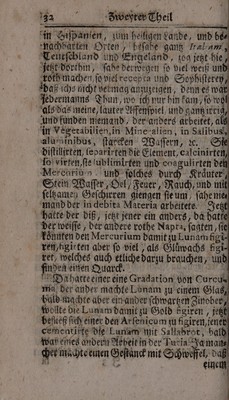 32 Zweyter Theil
in Hispanien, zum heiligen Lande, und be-
nachbarten Orten, besahe ganz Italiam,
Teutschland und Engeland, zog jetzt hie,
jetzt dorthin, sahe derowegen so viel weiß und
roth macher, so viel recepta und Sophisterey,
daß ichs nicht vermag anzuzeigen, denn es war
jedermanns Thun, wo ich nur hin kam, so wol
als das meine, lauter Affenspiel und
und funden niemand, der anders arbeitet, als
in Vegetabilien, in Mineralien, in Salibus,
aluminibus, starcken Wassern, &c. Sie
distilirten, separirten die Element, calcinirten,
solvirten, sie sublimirten und coagulirten den
Mercurium und solches durch Kräuter,
Stein, Wasser, Oel, Feuer, Rauch, und mit
seltzamen Geschirren giengen sie um, sahe nie-
mand der in debita Materia arbeitete. Jetzt
hatte der diß, jetzt jener ein anders, da hatte
der weisse, der andere rothe Napra, sagten, sie
könnten den Mercurium damit zu Lunam figi-
ren, figirten aber so viel, als Glüwachs figi-
ret, welches auch etliche darzu brauchen, und
finden einen Quarck.
Da hatte einer eine Gradation von Curcu-
ma, der ander machte Lunam zu einem Glas,
bald machte aber ein ander schwartzen Zinober,
wollte die Lunam damit zu Gold figiren, jetzt
befließ sich einer den Arsenicum zu figiren, jener
cementirte die Lunam mit Sallabrot, bald
war eines andern Arbeit in der Tutia, Ja man-
cher machte einen Gestanck mit Schweffel, daß
einem